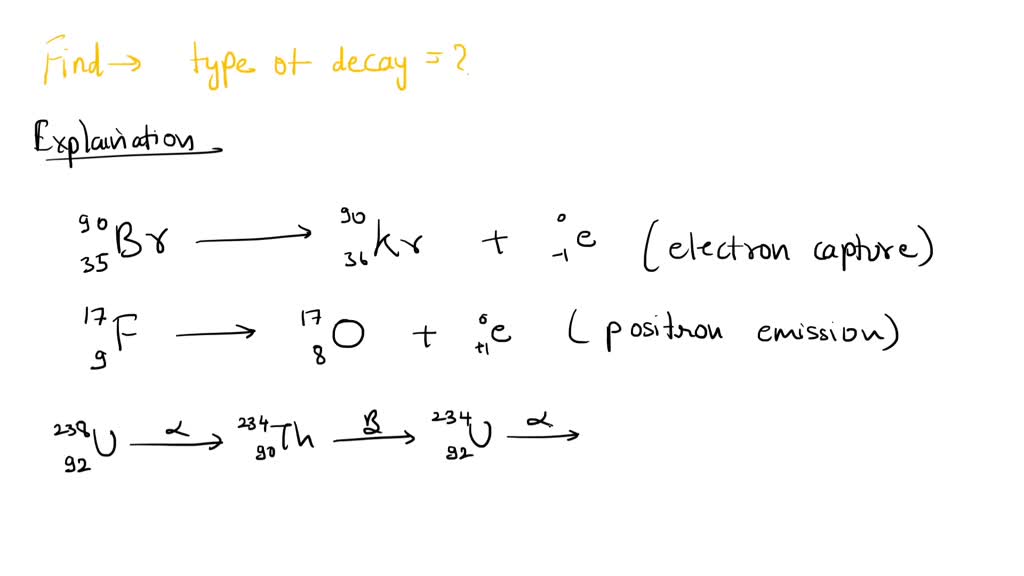 Find → type of decay = ?
Explaination
⁹⁰₃₅Br → ⁹⁰₃₆Kr + ⁰₋₁e (electron capture)
¹⁷₉F → ¹⁷₈O + ⁰₊₁e (positron emission)
²³⁸₉₂U —α→ ²³⁴₉₀Th —B→ ²³⁴₉₂U —α→